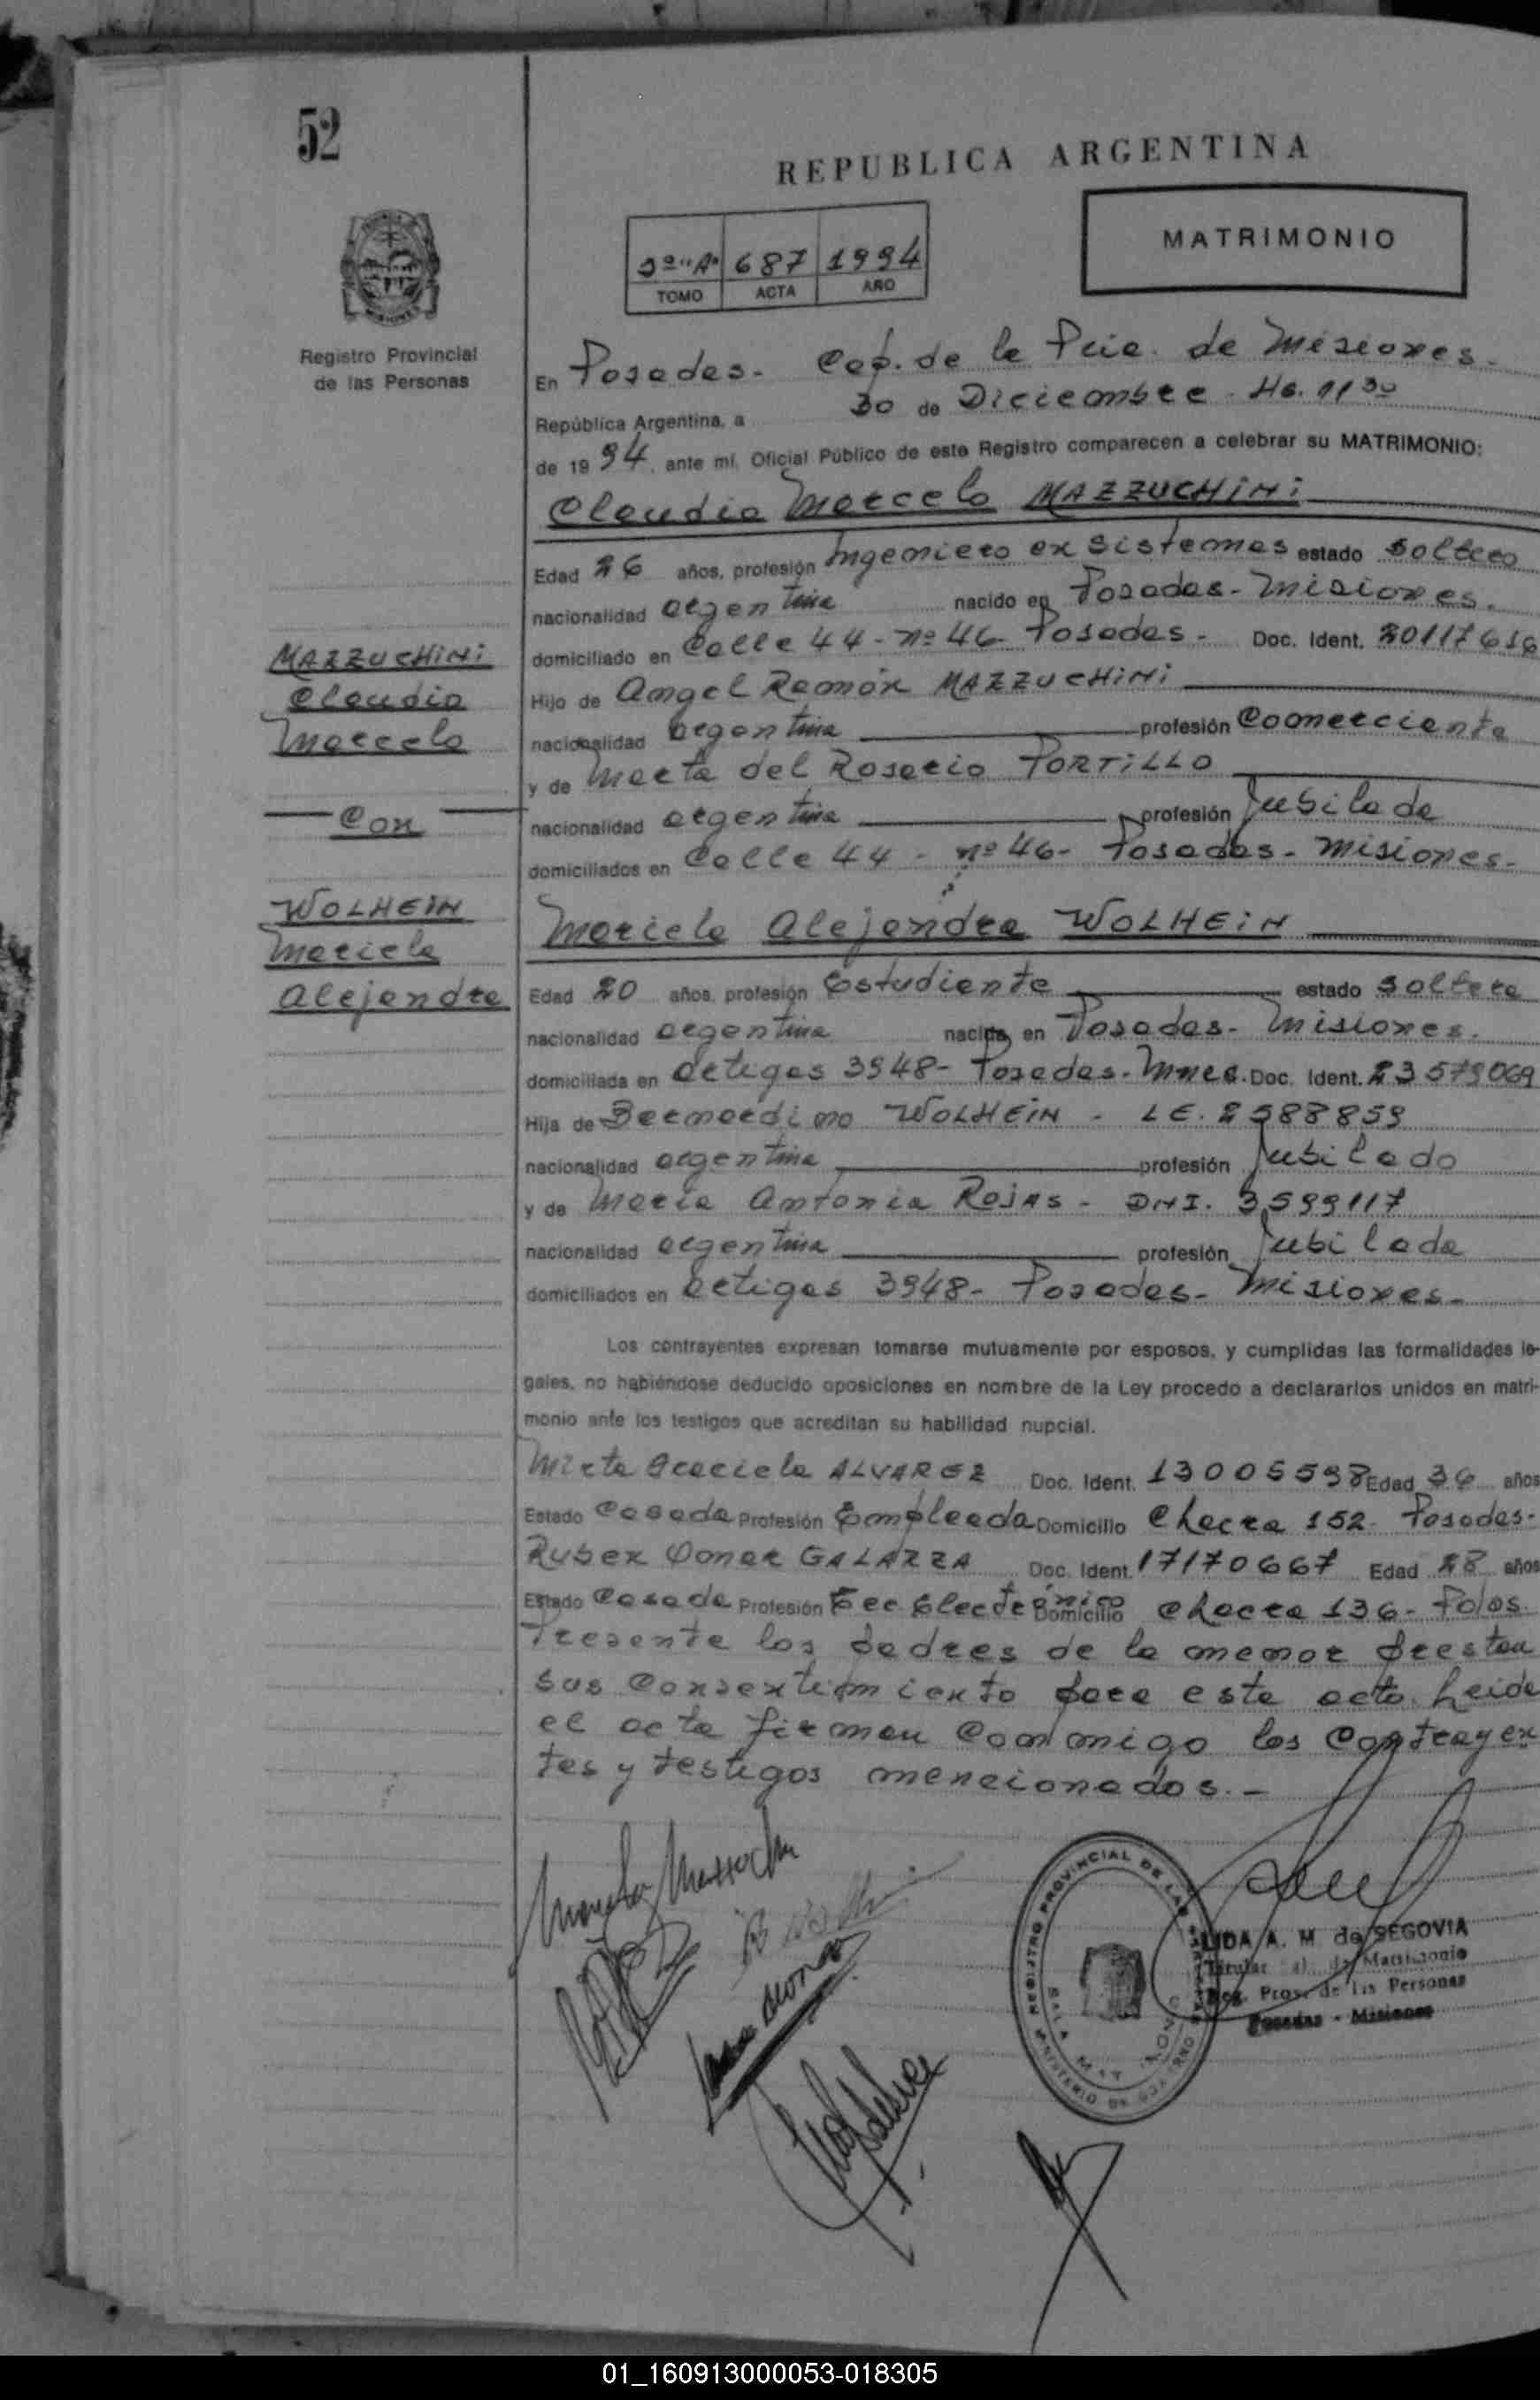 52
REPUBLICA ARGENTINA
MATRIMONIO
3º "A" 687 1994
TOMO ACTA AÑO
MISIONES
Registro Provincial
de las Personas
En Posadas - Cap. de la Pcia. de Misiones -
República Argentina, a 30 de Diciembre - Hs. 11 30
de 19 94, ante mí, Oficial Público de este Registro comparecen a celebrar su MATRIMONIO:
Claudio Marcelo MAZZUCHINI
Edad 26 años, profesión Ingeniero en Sistemas estado soltero
nacionalidad argentina nacido en Posadas - Misiones.
domiciliado en Calle 44 - nº 46 - Posadas - Doc. Ident. 20117616
Hijo de Angel Ramón MAZZUCHINI
nacionalidad argentina profesión Comerciante
y de Marta del Rosario PORTILLO
nacionalidad argentina profesión Jubilada
domiciliados en Calle 44 - nº 46 - Posadas - Misiones -
MAZZUCHINI
Claudio
Marcelo
Con
WOLHEIN
Mariela
Alejandra
Mariela Alejandra WOLHEIN
Edad 20 años, profesión Estudiante estado soltera
nacionalidad argentina nacida en Posadas - Misiones.
domiciliada en Artigas 3948 - Posadas - Mnes. Doc. Ident. 23579069
Hija de Bernardino WOLHEIN - LE. 2588859
nacionalidad argentina profesión Jubilado
y de María Antonia ROJAS - DNI. 3599117
nacionalidad argentina profesión Jubilada
domiciliados en Artigas 3948 - Posadas - Misiones -
Los contrayentes expresan tomarse mutuamente por esposos, y cumplidas las formalidades le-
gales, no habiéndose deducido oposiciones en nombre de la Ley procedo a declararlos unidos en matri-
monio ante los testigos que acreditan su habilidad nupcial.
Mirta Graciela ALVAREZ Doc. Ident. 13005598 Edad 36 años
Estado Casada Profesión Empleada Domicilio Chacra 152 - Posadas -
Ruben Omar GALARZA Doc. Ident. 17170667 Edad 28 años
Estado Casado Profesión Tec Electrónico Domicilio Chacra 136 - Pdas.
Presente los padres de la menor prestan
sus consentimiento para este acto. Leida
el acta firman conmigo los contrayen
tes y testigos mencionados. -
REGISTRO PROVINCIAL DE LAS PERSONAS
MINISTERIO DE GOBIERNO
LIDA A. M. de SEGOVIA
Titular Matrimonio
Reg. Prov. de las Personas
Posadas - Misiones
01_160913000053-018305